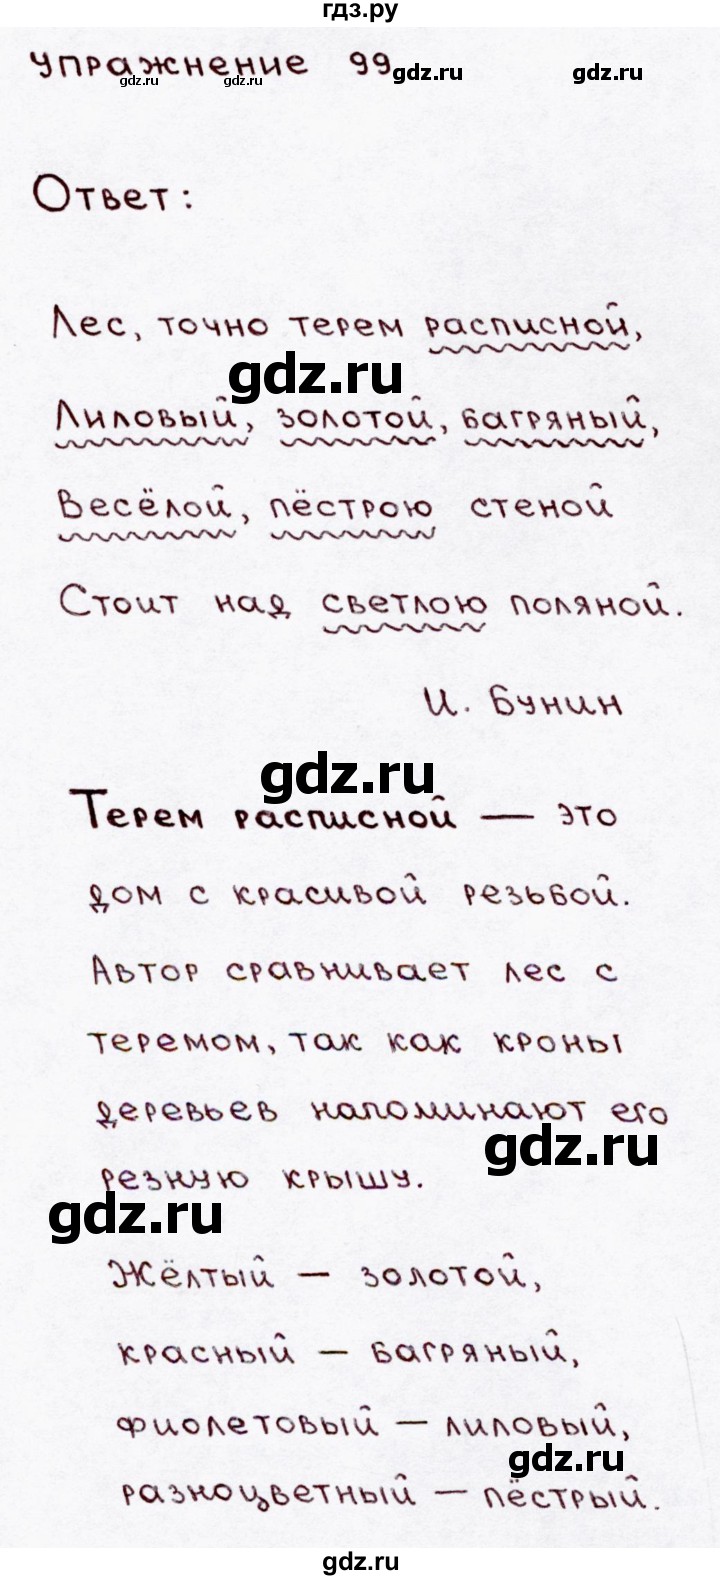 гдз.ру
упражнение 99
gdz.ru gdz.ru gdz.ru gdz.ru
Ответ:
Лес, точно терем расписной,
gdz.ru
Лиловый, золотой, багряный,
Весёлой, пёстрою стеной
Стоит над светлою поляной.
И. Бунин
gdz.ru
Терем расписной — это
дом с красивой резьбой.
Автор сравнивает лес с
теремом, так как кроны
деревьев напоминают его
gdz.ru
резную крышу.
gdz.ru
Жёлтый — золотой,
красный — багряный,
фиолетовый — лиловый,
gdz.ru
разноцветный — пёстрый.
gdz.ru